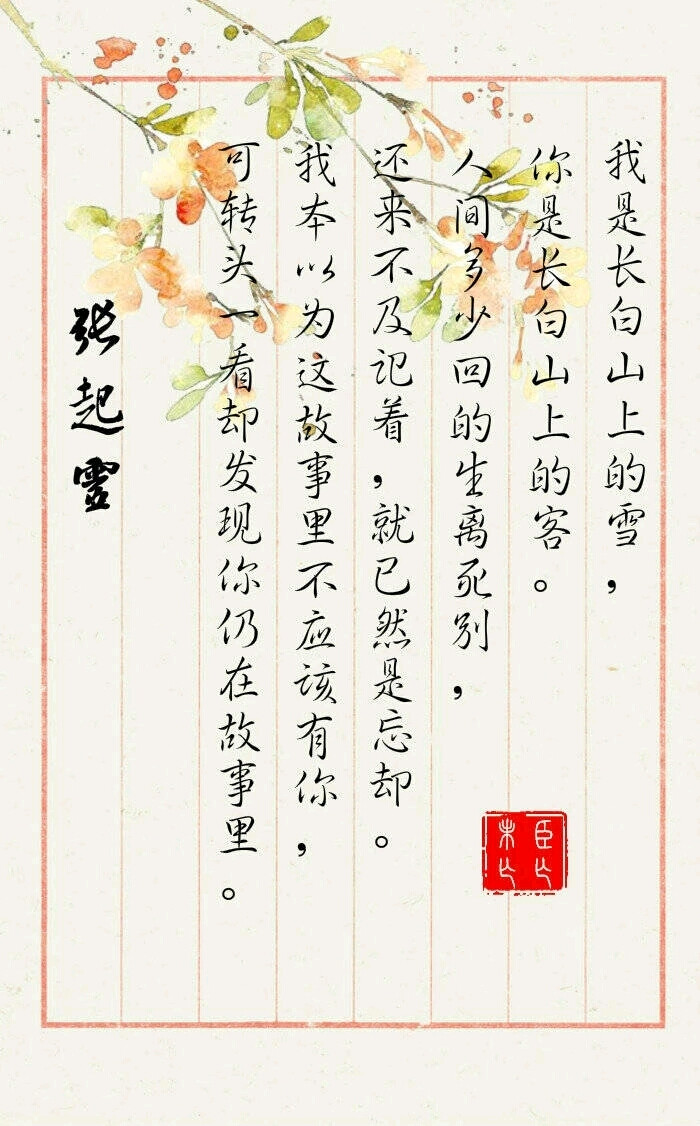 我是长白山上的雪，
你是长白山上的客。
人间多少回的生离死别，
还来不及记着，就已然是忘却。
我本以为这故事里不应该有你，
可转头一看却发现你仍在故事里。
张起灵